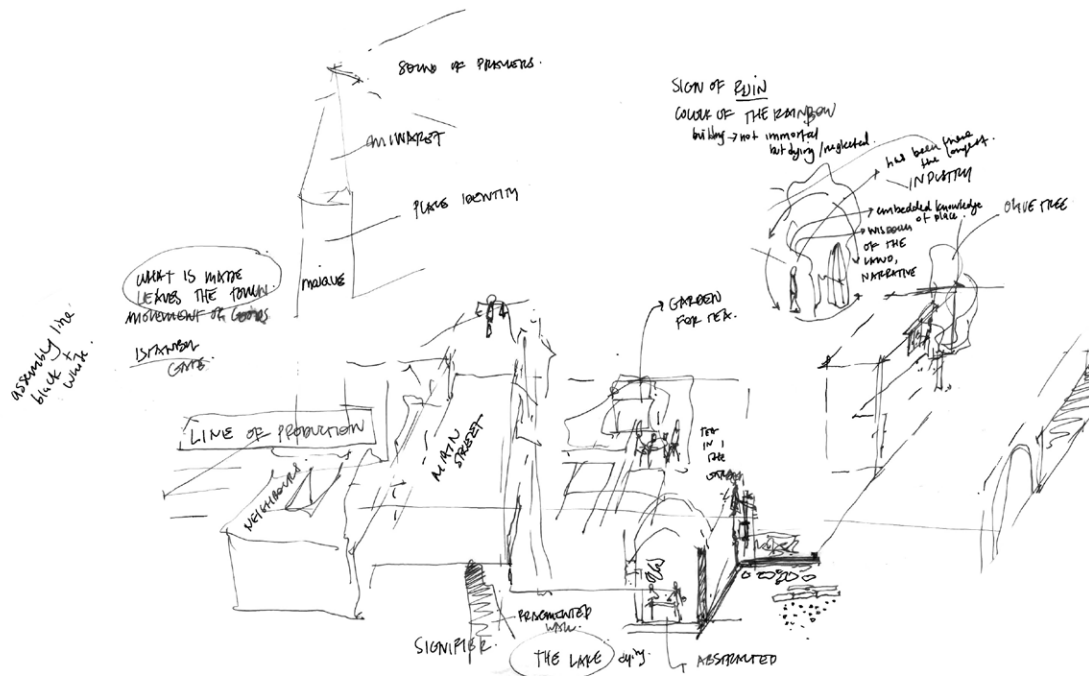 SOUND OF PRAYERS.
MINARET
PLACE IDENTITY
WHAT IS MADE
LEAVES THE TOWN.
MOVEMENT OF GOODS
ISTANBUL
GATE.
assembly line
black +
white.
LINE OF PRODUCTION
NEIGHBOURS
MAIN
STREET
SIGN OF RUIN
COLOUR OF THE RAINBOW
building → not immortal
but dying/neglected.
has been there
the longest.
INDUSTRY
embedded knowledge
of place.
WISDOM
OF THE
LAND,
NARRATIVE
OLIVE TREE
GARDEN
FOR TEA.
TEA
IN
THE
FRAGMENTED
WALL.
SIGNIFIER.
THE LAKE dying.
ABSTRACTED